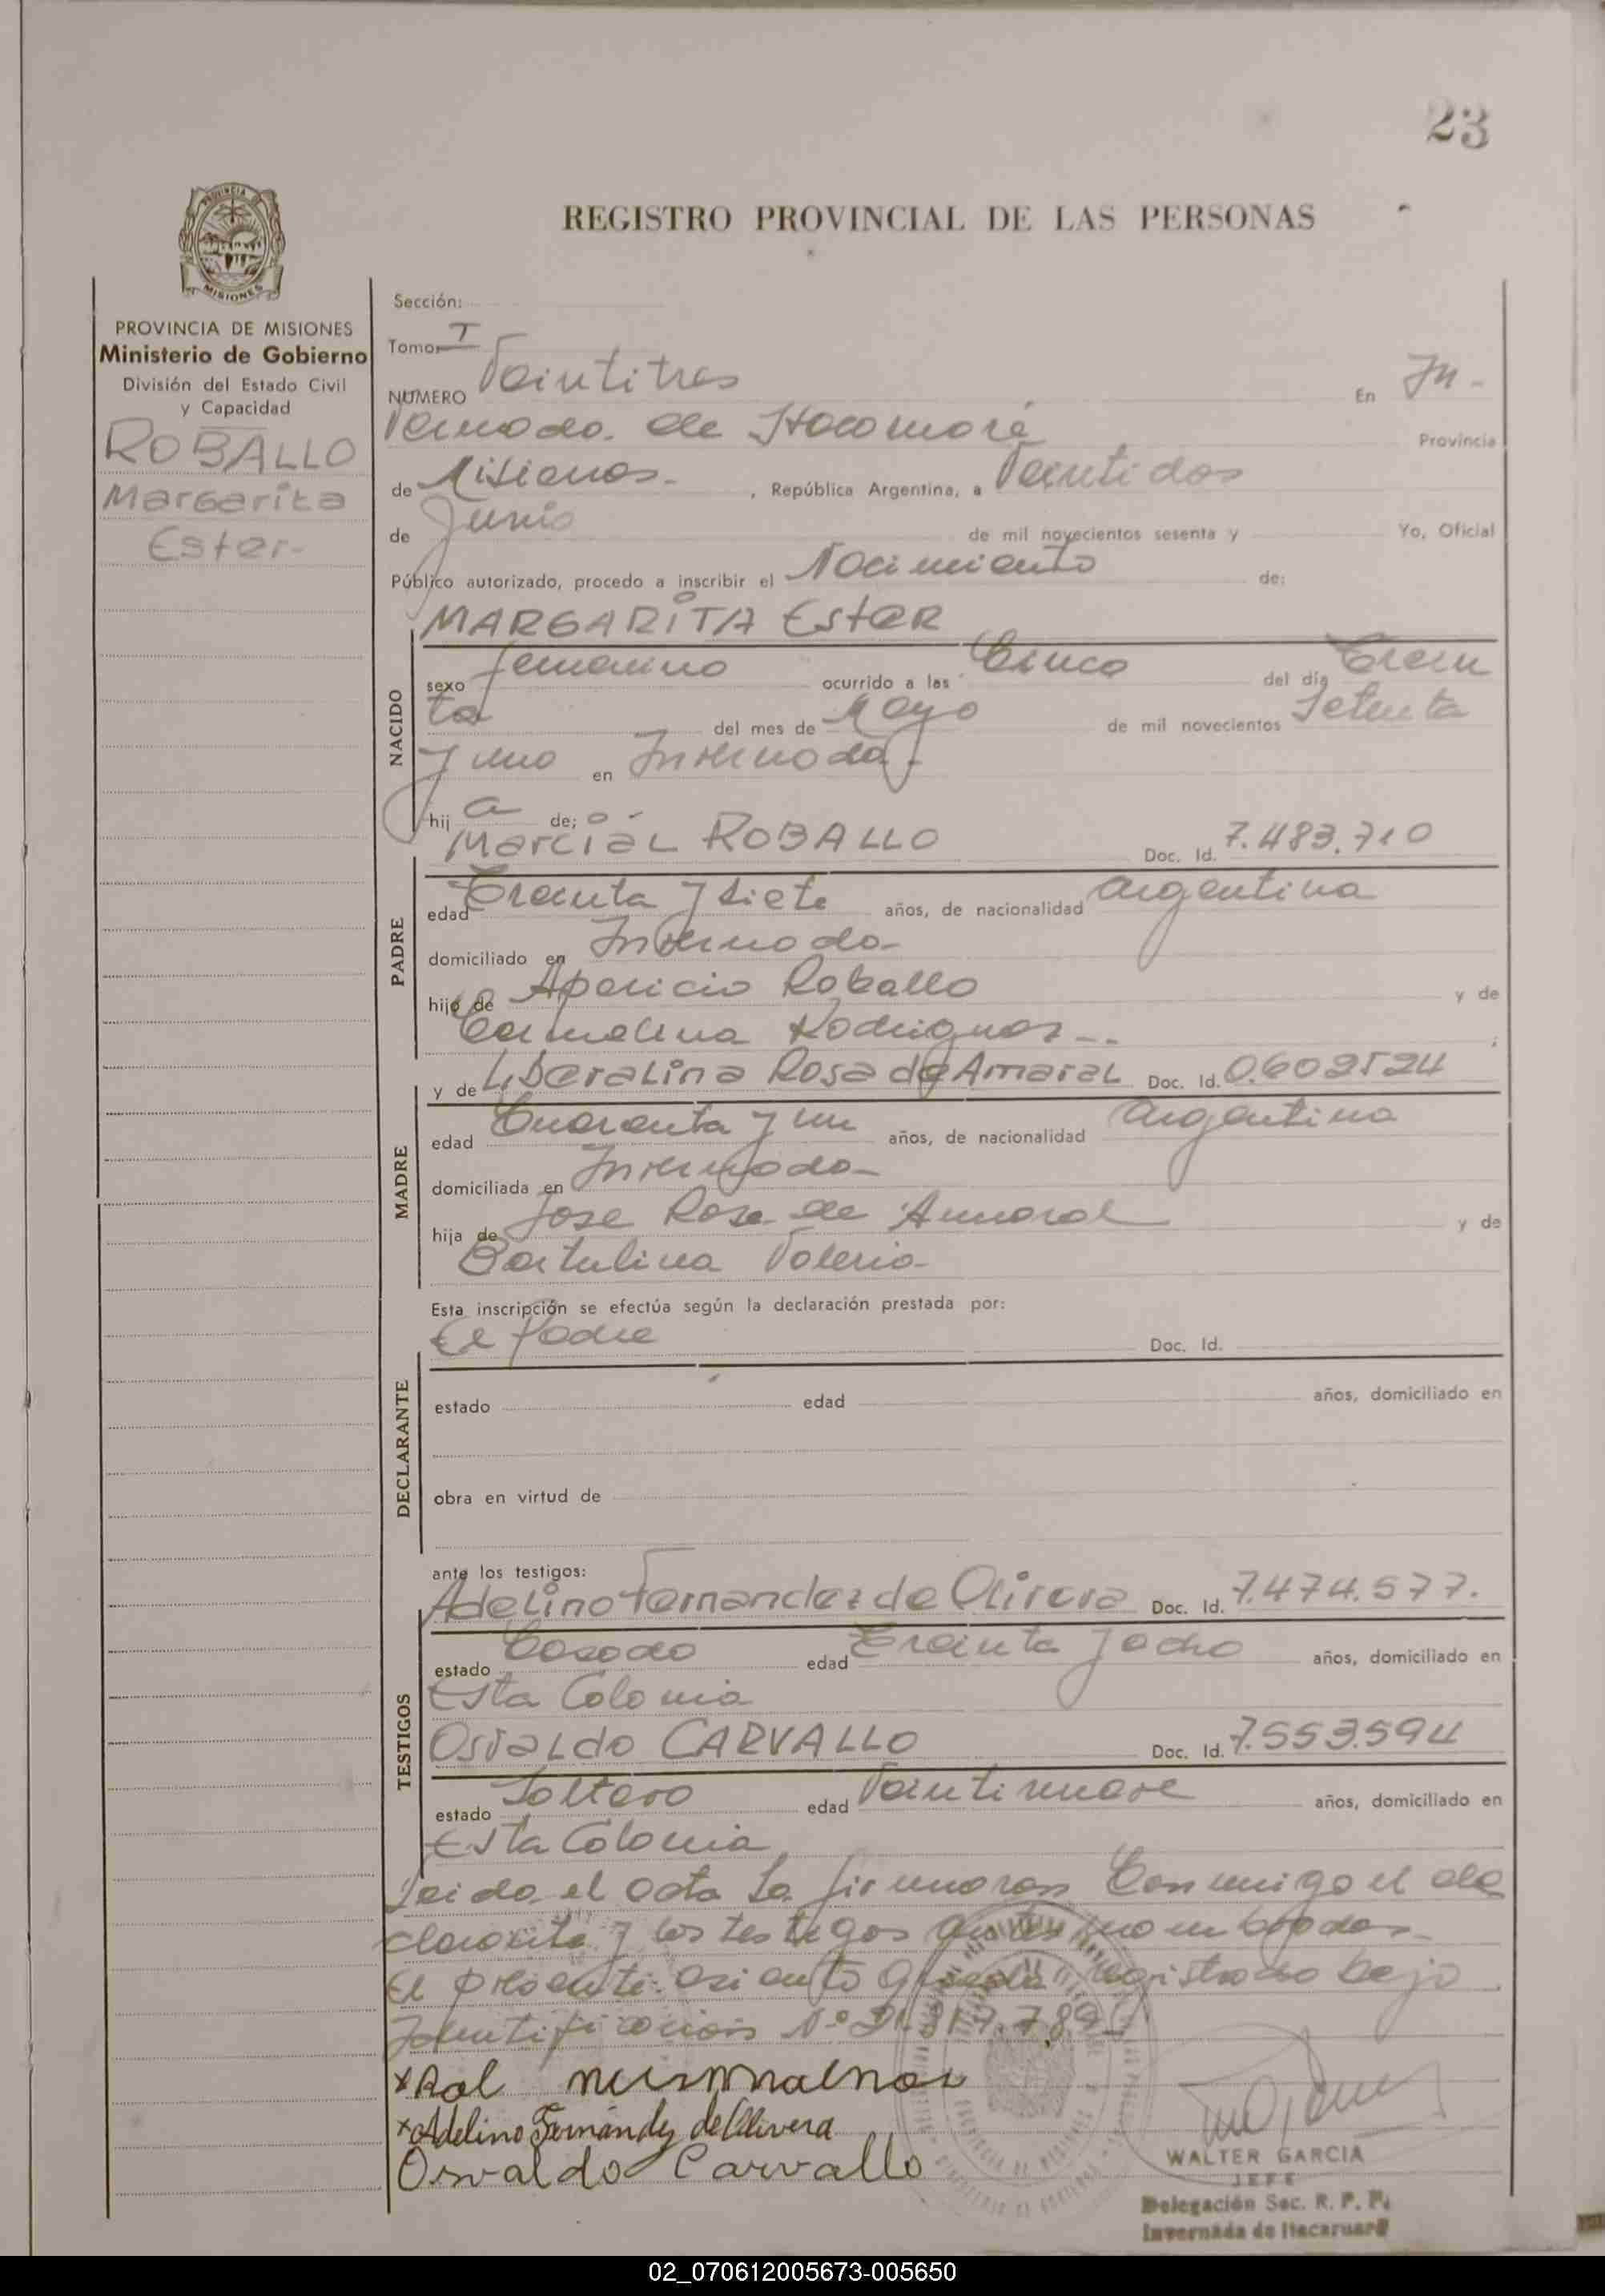 23
REGISTRO PROVINCIAL DE LAS PERSONAS
PROVINCIA
MISIONES
PROVINCIA DE MISIONES
Ministerio de Gobierno
División del Estado Civil
y Capacidad
ROBALLO
Margarita
Ester-
Sección:
Tomo I
NUMERO Veintitres En In-
vernada de Itacaruaré Provincia
de Misiones- , República Argentina, a Veintidos
de Junio de mil novecientos sesenta y Yo, Oficial
Público autorizado, procedo a inscribir el Nacimiento de:
MARGARITA EstER
NACIDO
sexo femenino ocurrido a las Cinco del día Trein
ta del mes de Mayo de mil novecientos Setenta
y uno en Invernada-
hij a de;
Marcial ROBALLO Doc. Id. 7.483.710
PADRE
edad Treinta y siete años, de nacionalidad Argentina
domiciliado en Invernada-
hijo de Aparicio Roballo y de
Carmelina Rodriguez-- ;
y de Liberalina Rosa de Amaral Doc. Id. 0.602524
MADRE
edad Cuarenta y un años, de nacionalidad Argentina
domiciliada en Invernada-
hija de Jose Rosa de Amaral y de
Valeria-
Esta inscripción se efectúa según la declaración prestada por:
El Padre Doc. Id.
DECLARANTE
estado edad años, domiciliado en
obra en virtud de
ante los testigos:
Adelino Fernandez de Olivera Doc. Id. 7.474.577.
TESTIGOS
estado Casado edad Treinta y ocho años, domiciliado en
Esta Colonia
Osvaldo CARVALLO Doc. Id. 7.553.594
estado Soltero edad Veintinueve años, domiciliado en
Esta Colonia
Leida el acta la firmaran Conmigo el de
clarante y los testigos antes nombrados-
El presente asiento queda registrado bajo
Identificacion Nº
x
x Adelino Fernández de Olivera
Osvaldo Carvallo
WALTER GARCIA
JEFE
Delegación Sec. R. P. P.
Invernada de Itacaruaré
02_070612005673-005650